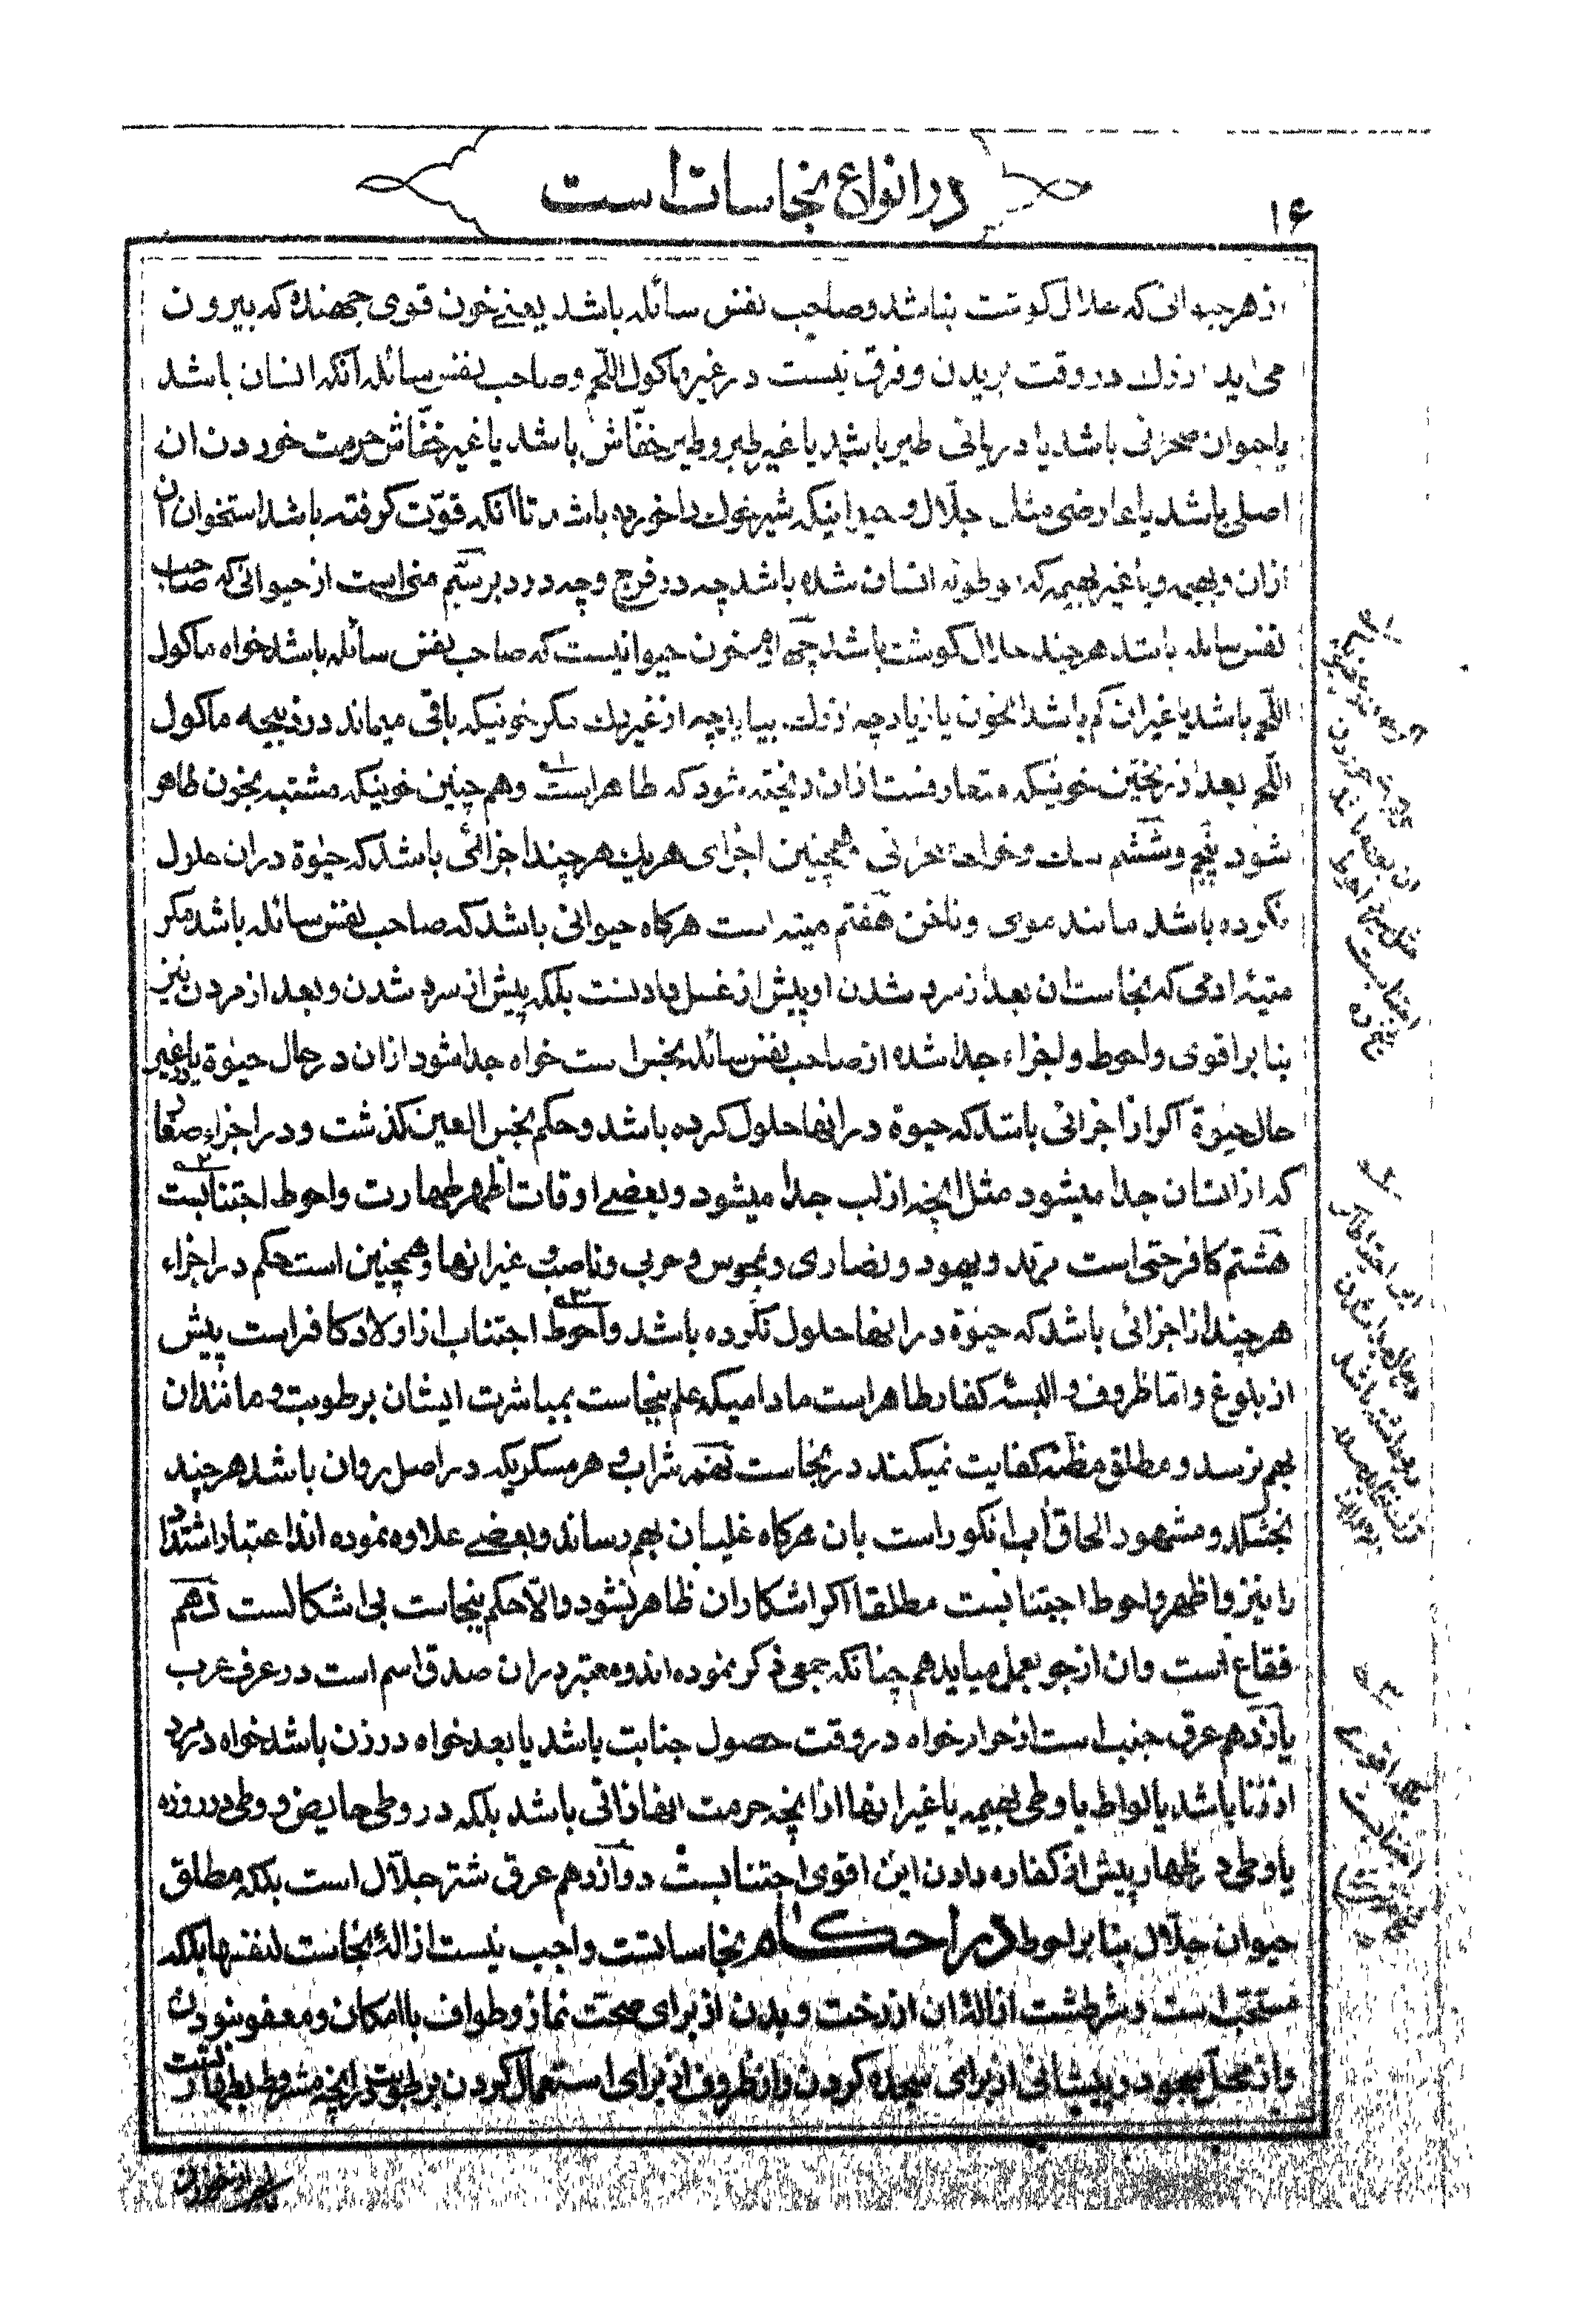 در انواع نجاسات است
۱۶
از هر حیوانی که حلال کوشت نباشد و صاحب نفس سائله باشد یعنے خون قوی جهنده که بیرون
می اید از رك در وقت بریدن و فرق نیست در غیر ماکول اللّحم و صاحب نفس سائله آنکه انسان باشد
یا حیوان صحرائی باشد یا دریائی طیر باشد یا غیر طیر و طیر خفّاش باشد یا غیر خفّاش حرمت خوردن ان
اصلی باشد یا عارضی مثل جلّال و حیوانیکه شیر خوك را خورده باشد تا آنکه قوّت کرفته باشد استخوان ان
ازان و بهیمه و یا غیر بهیمه که موطوئه انسان شده باشد چه در فرج و چه در دبر سیّم منی است از حیوانی که صاحب
نفس سائله باشد هر چند حلال کوشت باشد چهارم خون حیوانیست که صاحب نفس سائله باشد خواه ماکول
اللّحم باشد یا غیر ان کم باشد انخون یا زیاد چه از رك بیاید چه از غیر رك مکر خونیکه باقی میماند در ذبیحه ماکول
اللّحم بعد از ریختن خونیکه متعارفست ازان ریخته شود که طاهر است وهم چنین خونیکه مشتبه بخون طاهر
شود پنجم و ششم سك و خوك صحرائی همچنین اجزای هریك هر چند اجزائی باشد که حیوة دران حلول
نکرده باشد مانند موی و ناخن هفتم میته است هرکاه حیوانی باشد که صاحب نفس سائله باشد مکر
میتهٔ ادمی که نجاست ان بعد از سرد شدن او پیش از غسل دادنست بلکه پیش از سرد شدن و بعد از مردن نیز
بنا بر اقوی و احوط و اجزاء جدا شده از صاحب نفس سائله نجس است خواه جدا شود ازان در حال حیوة یا در غیر
حال حیوة اکر از اجزائی باشد که حیوة در انها حلول کرده باشد و حکم نجس العین کذشت و در اجزاء صغار
که از انسان جدا میشود مثل انچه از لب جدا میشود و بعضے اوقات اظهر طهارت و احوط اجتنابست
هشتم کافر حتی است مرتد و یهود و نصاری و مجوس و حربی و ناصب و غیر انها و همچنین است حکم در اجزاء
هر چند از اجزائی باشد که حیوة در انها حلول نکرده باشد و احوط اجتناب از اولاد کافر است پیش
از بلوغ و امّا ظروف و البسهٔ کفار طاهر است مادامیکه علم بنجاست بمباشرت ایشان برطوبت و مانند ان
بهم نرسد و مطلق مظنّه کفایت نمیکند در نجاست نهم شراب و هر مسکریکه در اصل روان باشد هر چند
بخشکد و مشهور الحاق اب انکور است بان هرکاه غلیان بهم رساند و بعضے علاوه نموده اند اعتبار اشتداد
را نیز و اظهر و احوط اجتنابست مطلقا اکر اسکار ان ظاهر نشود و الّا حکم بنجاست بی اشکالست دهم
فقاع است و ان از جو بعمل میاید هم چنانکه جمعی ذکر نموده اند و معتبر دران صدق اسم است در عرف عرب
یازدهم عرق جنب است از حرام خواه در وقت حصول جنابت باشد یا بعد خواه در زن باشد خواه در مرد
از زنا باشد یا لواط یا وطی بهیمه یا غیر انها از انچه حرمت انها ذاتی باشد بلکه در وطی حایض و وطی در روزه
یا وطی در ظهار پیش از کفاره دادن این اقوی اجتنابست دوازدهم عرق شتر جلّال است بلکه مطلق
حیوان جلّال بنا بر احوط در احکام نجاساتست واجب نیست ازالهٔ نجاست لنفسها بلکه
مستحب است و شرطست ازالهٔ ان از رخت و بدن از برای صحت نماز و طواف با امکان و معفو نبودن
و از محل سجود در پیشانی از برای سجده کردن و از ظروف از برای استعمال کردن برطوبت در انچه مشروط بطهارتست